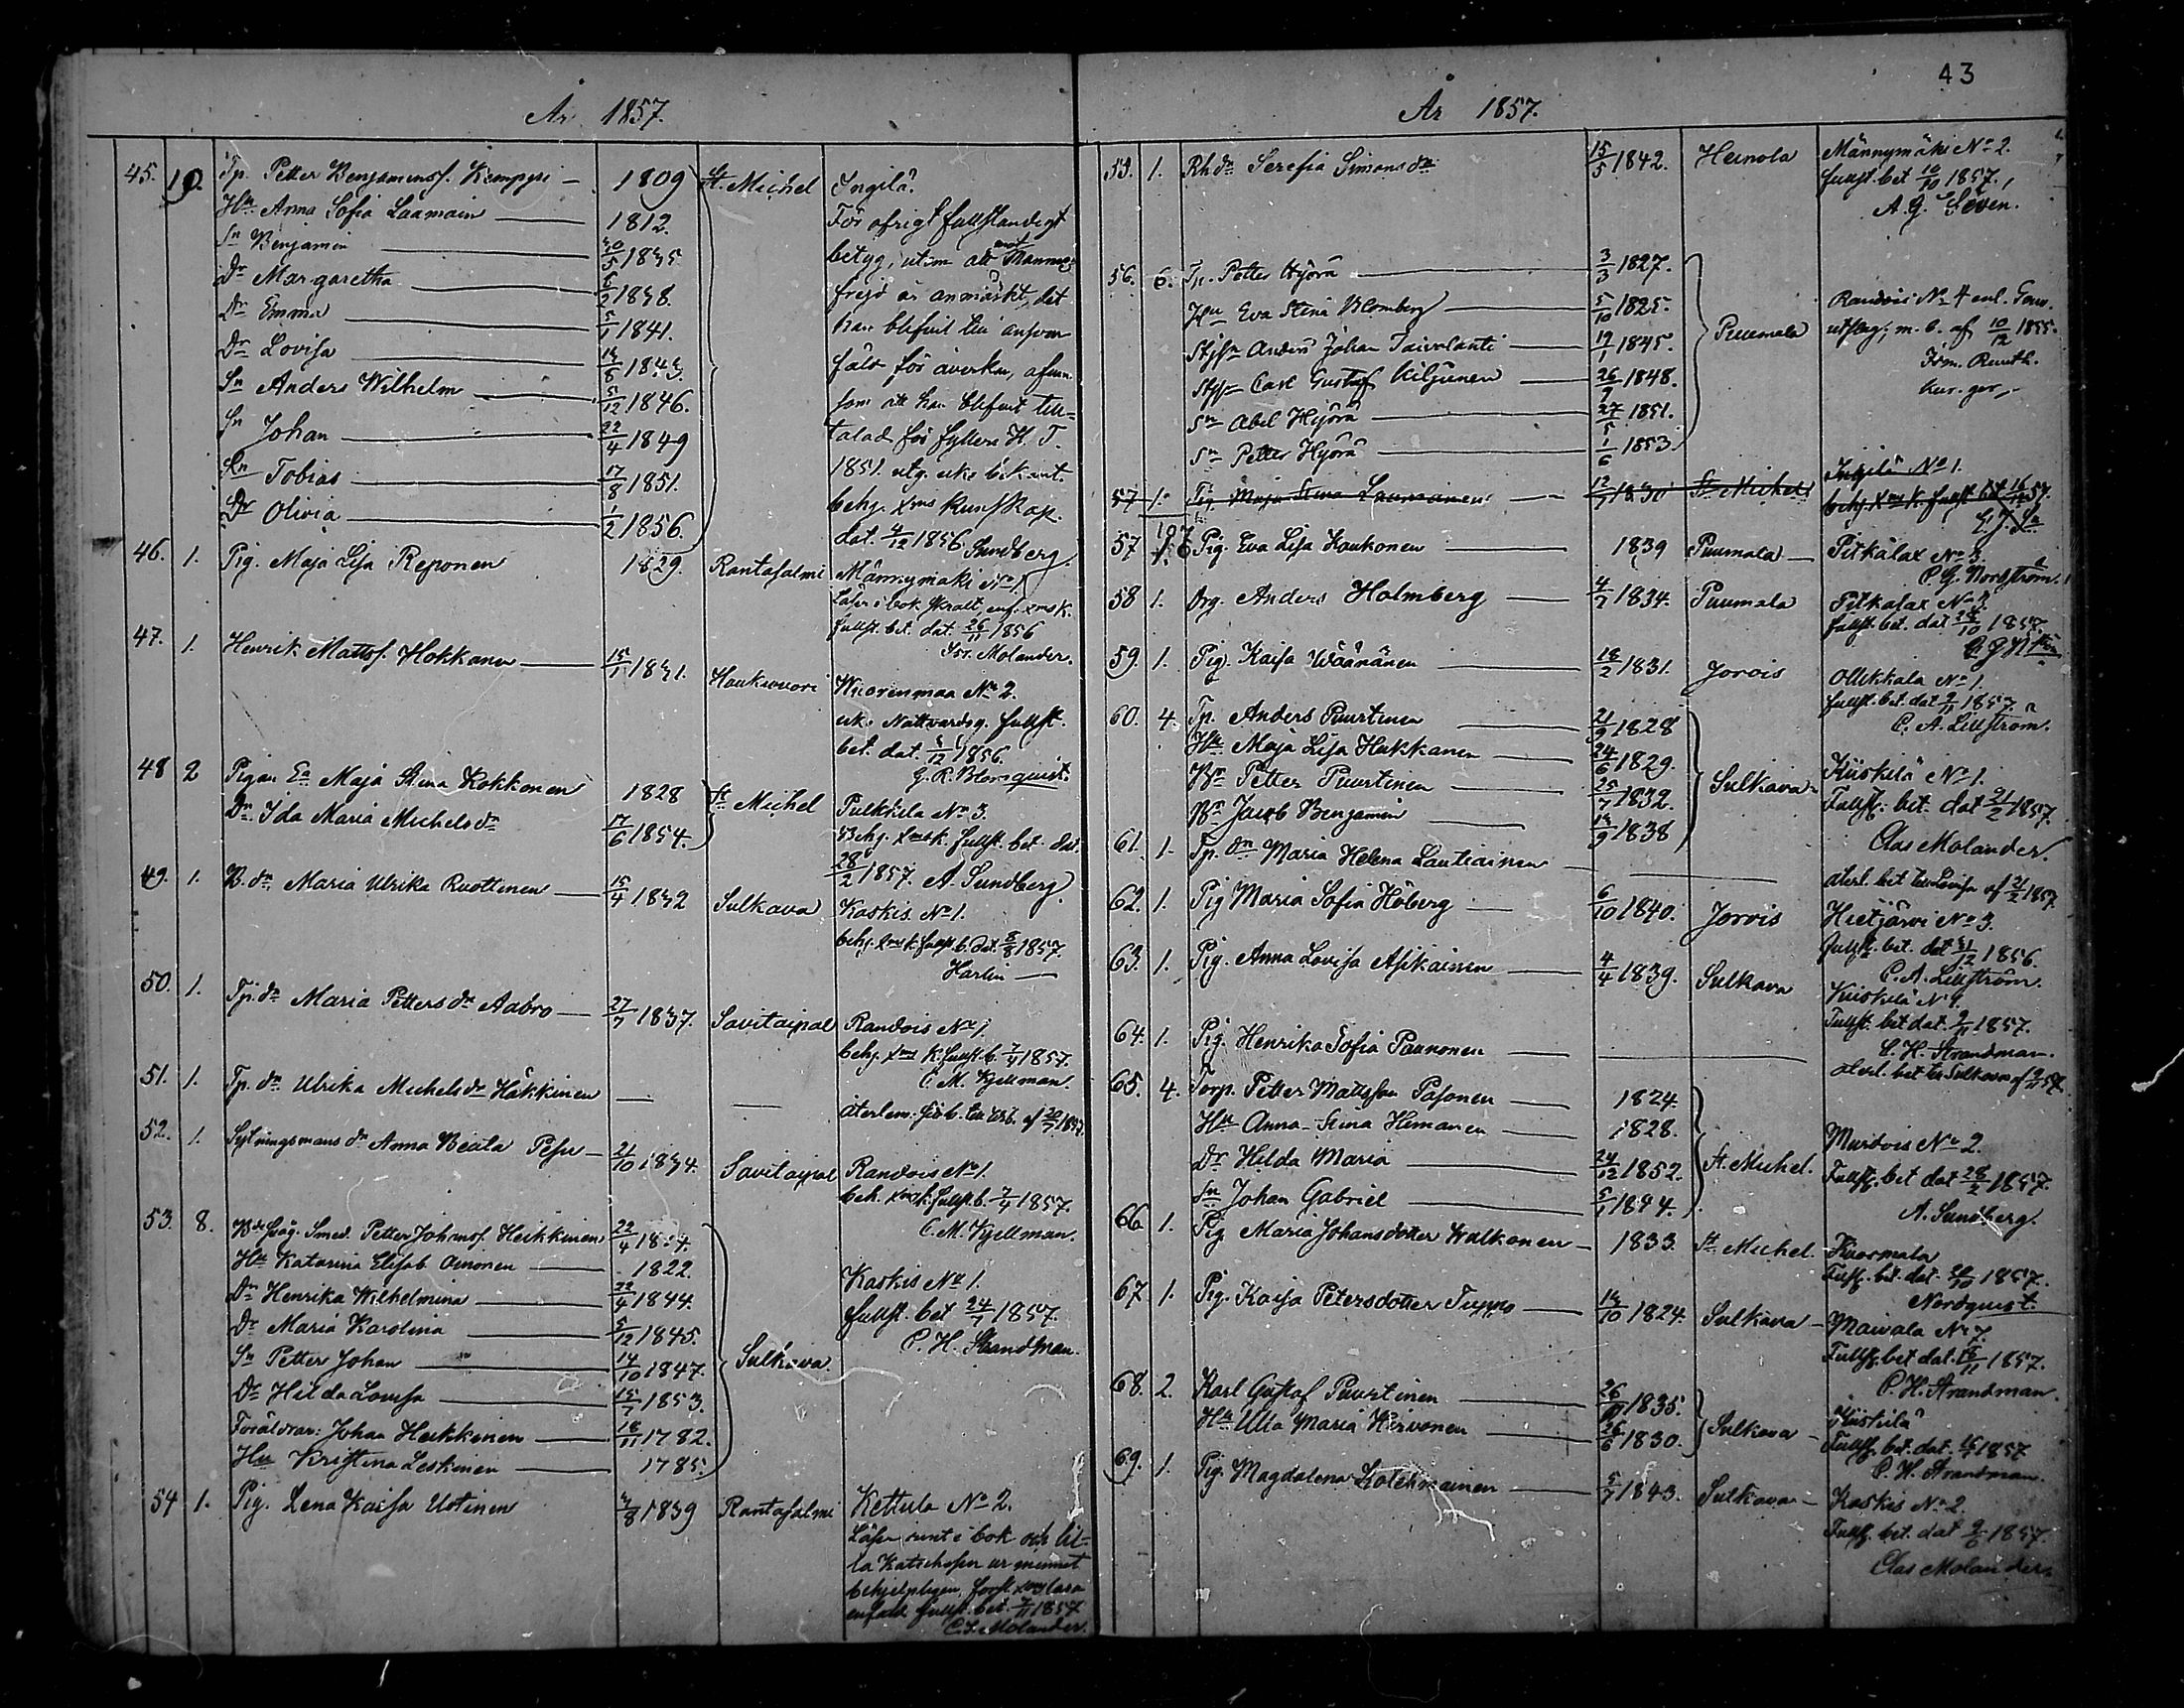 År 1857.
45. 10. Tp. Petter Benjaminsf. Kemppi — 1809 St. Michel Ingilä.
Hu Anna Sofia Laamain — 1812. För öfrigt fullständigt
Sn Benjamin — 30/5 1835 betyg, utom att mot Mannes
Dr Margaretha — 6/2 1838. frejd är anmärkt, det
Dr Emma — 5/1 1841. han blifvit till ansvar
Dr Lovisa — 1843. fäld för åverkan,
Sn Anders Wilhelm — 5/12 1846. som att han blifvit till-
Sn Johan — 22/4 1849 talad för fylleri H. T.
Sn Tobias — 17/8 1851. 1851. utg. utk. bekant.
Dr Olivia — 1/2 1856. behg. xms kunskap.
dat. 4/12 1856 Sundberg.
46. 1. Pig. Maja Lisa Reponen 1829. Rantasalmi Männymäki No 1.
Läser i bok skralt, enf. xms k.
fullst. bet. dat. 26/11 1856
Molander.
47. 1. Henrik Mattsf. Hokkanen — 15/1 1831. Haukivuori Wuorenmaa No 2.
utk. Nattvardsg. fullst.
bet. dat. 1/12 1856.
G. R. Blomquist.
48 2 Pigan Ea Maja Stina Kokkonen 1828 St Michel Pulkkila No 3.
Dr. Ida Maria Michelsdr 17/6 1854. Behg. xms k. fullst. bet. dat.
28/2 1857. A. Sundberg.
49. 1. B. dr. Maria Ulrika Ruottinen — 15/4 1832 Sulkava Koskis No 1.
behg. xms k. fullst b. dat. 8/8 1857.
Harlin —
50. 1. Tp. dr Maria Petters dr Aabro — 27/7 1837. Savitaipal Randois No 1.
behg. xms k. fullst. b. 7/4 1857.
C. M. Kjellman.
51. 1. Tp. dr Ulrika Michels dr Häkkinen — — återlem.
52. 1. Sytningsmans dr Anna Beata Pesu — 21/10 1834. Savitaipal Randois No 1.
beh. xms k. fullst b. 7/4 1857.
C. M. Kjellman.
53. 8. Smed. Petter Johansf. Heikkinen 22/4
Hu Katarina Elisab. Oinonen — 1822. Koskis No 1.
Dr Henrika Wilhelmina — 22/4 1844. fullst. bet 24/7 1857.
Dr Maria Karolina — 5/12 1845. C. H. Strandman.
Sn Petter Johan — 14/10 1847. Sulkava.
Dr Hilda Lovisa — 15/7 1853.
Föräldrar: Johan Heikkinen — 18/11 1782.
Hu Kristina Leskinen — 1785.
54 1. Pig. Lena Kaisa Ustinen 3/8 1839 Rantasalmi Kettula No 2.
Läser rent i bok och lil-
la Katechesen ur minnet
behjelpligen,
enfald. fullst. bet. 7/11 1857
Molander.
43
År 1857.
55. 1. Rh dr Serefia Simons dr 15/5 1842. Heinola Männymäki No 2.
fullst. bet 10/10 1857.,
A. G. Löven.
56. 6. Tp. Petter Hyörä — 3/3 1827.
Hu Eva Stina Blomberg — 5/10 1825. Randois No 4 enl. Gouv.
Styfsn Anders Johan Taivalanti — 19/1 1845. Puumala utslag, m. b. af 10/12 1855.
Styfsn Carl Gustaf Kiljunen — 26/9 1848. Ruuth.
Sn Abel Hyörä — 27/5 1851.
Sn Petter Hyörä — 1/6 1853.
57 1. Pig Maja Stina Laamainen — 12/7 1830 St Michel Ingilä No 1.
57 1. Pig. Eva Lisa Kaukonen — 1839 Puumala — Pitkälax No 3.
C. G. Nordström.
58 1. Drg. Anders Holmberg — 4/7 1834. Puumala Pitkälax
fullst. bet. dat 28/10 1857.
59. 1. Pig. Kaisa Wäänänen — 18/2 1831. Jorois Ollikkala No 1.
fullst. bet. dat 9/11 1857.
C. A. Lillström.
60. 4. Tp. Anders Puurtinen — 21/9 1828
Hu Maja Lisa Hukkanen — 24/6 1829.
Br Petter Puurtinen — 25/7 1832. Sulkava Kiiskilä No 1.
Br Jacob Benjamin — 1838 Fullst. bet. dat 21/2 1857.
Clas Molander.
61. 1. Tp. dr Maria Helena Lautiainen — återl. bet
62. 1. Pig Maria Sofia Höberg — 6/10 1840. Jorois Hietjärvi No 3.
fullst. bet. dat 31/12 1856.
C. A. Lillström.
63. 1. Pig. Anna Lovisa Asikainen — 4/4 1839. Sulkava Kiiskilä
Fullst. bet dat. 9/11 1857.
C. H. Strandman.
64. 1. Pig. Henrika Sofia Paunonen — återl. bet till Sulkava af 9/11 57.
65. 4. Torp. Petter Mattsson Pasonen — 1824.
Hu Anna-Stina Himanen — 1828. Murdois No 2.
Dr Hilda Maria — 24/12 1852. St. Michel. Fullst. bet dat 28/2 1857.
Sn Johan Gabriel — A. Sundberg.
66. 1. Pig Maria Johansdotter Walkonen — 1833. St Michel. Kuormala
Fullst. bet. dat. 1857.
Nordquist.
67. 1. Pig. Kaisa Petersdotter Tuppo — 1824. Sulkava — Maivala No 7.
Fullst. bet dat. 1857.
C. H. Strandman.
68. 2. Karl Gustaf Puurtinen — 1835. Kiiskilä
Hu Ulla Maria Hirvonen — 26/6 1830. Sulkava — Fullst. bet. dat. 1857
C. H. Strandman.
69. 1. Pig. Magdalena Kolehmainen — 5/7 1843. Sulkava — Koskis No 2.
Fullst. bet. dat 9/6 1857.
Clas Molander.